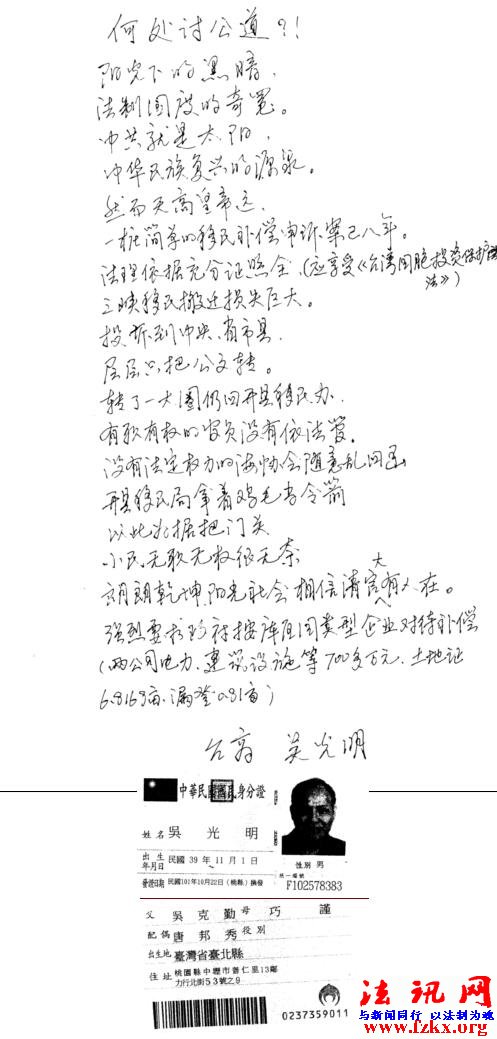 何处讨公道?!
阳光下的黑暗,
法制国度的奇冤。
中共就是太阳,
中华民族复兴的源泉。
然而天高皇帝远,
一桩简单的移民补偿申诉案已八年。
法理依据充分证照全(应享受《台湾同胞投资保护法》)
三峡移民搬迁损失巨大。
投诉到中央、省市县,
层层只把公文转。
转了一大圈仍回开县移民办,
有职有权的官员没有依法管,
没有法定权力的海协会随意乱回函
开县移民局拿着鸡毛当令箭
以此为据把门关
小民无职无权很无奈
朗朗乾坤阳光社会相信清官大有人在。
强烈要求政府按库周同类型企业对待补偿
(两公司电力、建筑设施等700多万元、土地证
6.8169亩、漏登0.81亩)
台商 吴光明
中華民國國民身分證
姓名 吳光明
出生年月日 民國39年11月1日
性別 男
發證日期 民國101年10月22日(桃縣)換發
統一編號
F102578383
父 吳克勤 母 巧謹
配偶 唐邦秀 役別
出生地 臺灣省臺北縣
住址 桃園縣中壢市普仁里13鄰
力行北街53號之9
0237359011
法讯网
与新闻同行 以法制为魂
www.fzkx.org